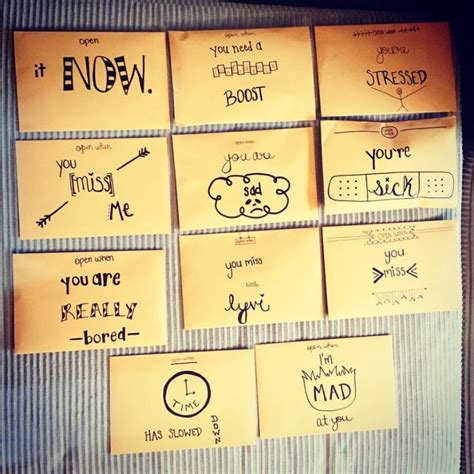 open
it NOW.
open when
you need a
BOOST
OPEN WHEN
you're
STRESSED
open when
you
[miss]
Me
open when
you are
sad
OPEN WHEN
you're
sick
open when
you are
REALLY
—bored—
open when
you miss
little
Levi
OPEN WHEN
you
miss
open when
TIME
HAS SLOWED DOWN
open when
I'm
MAD
at you